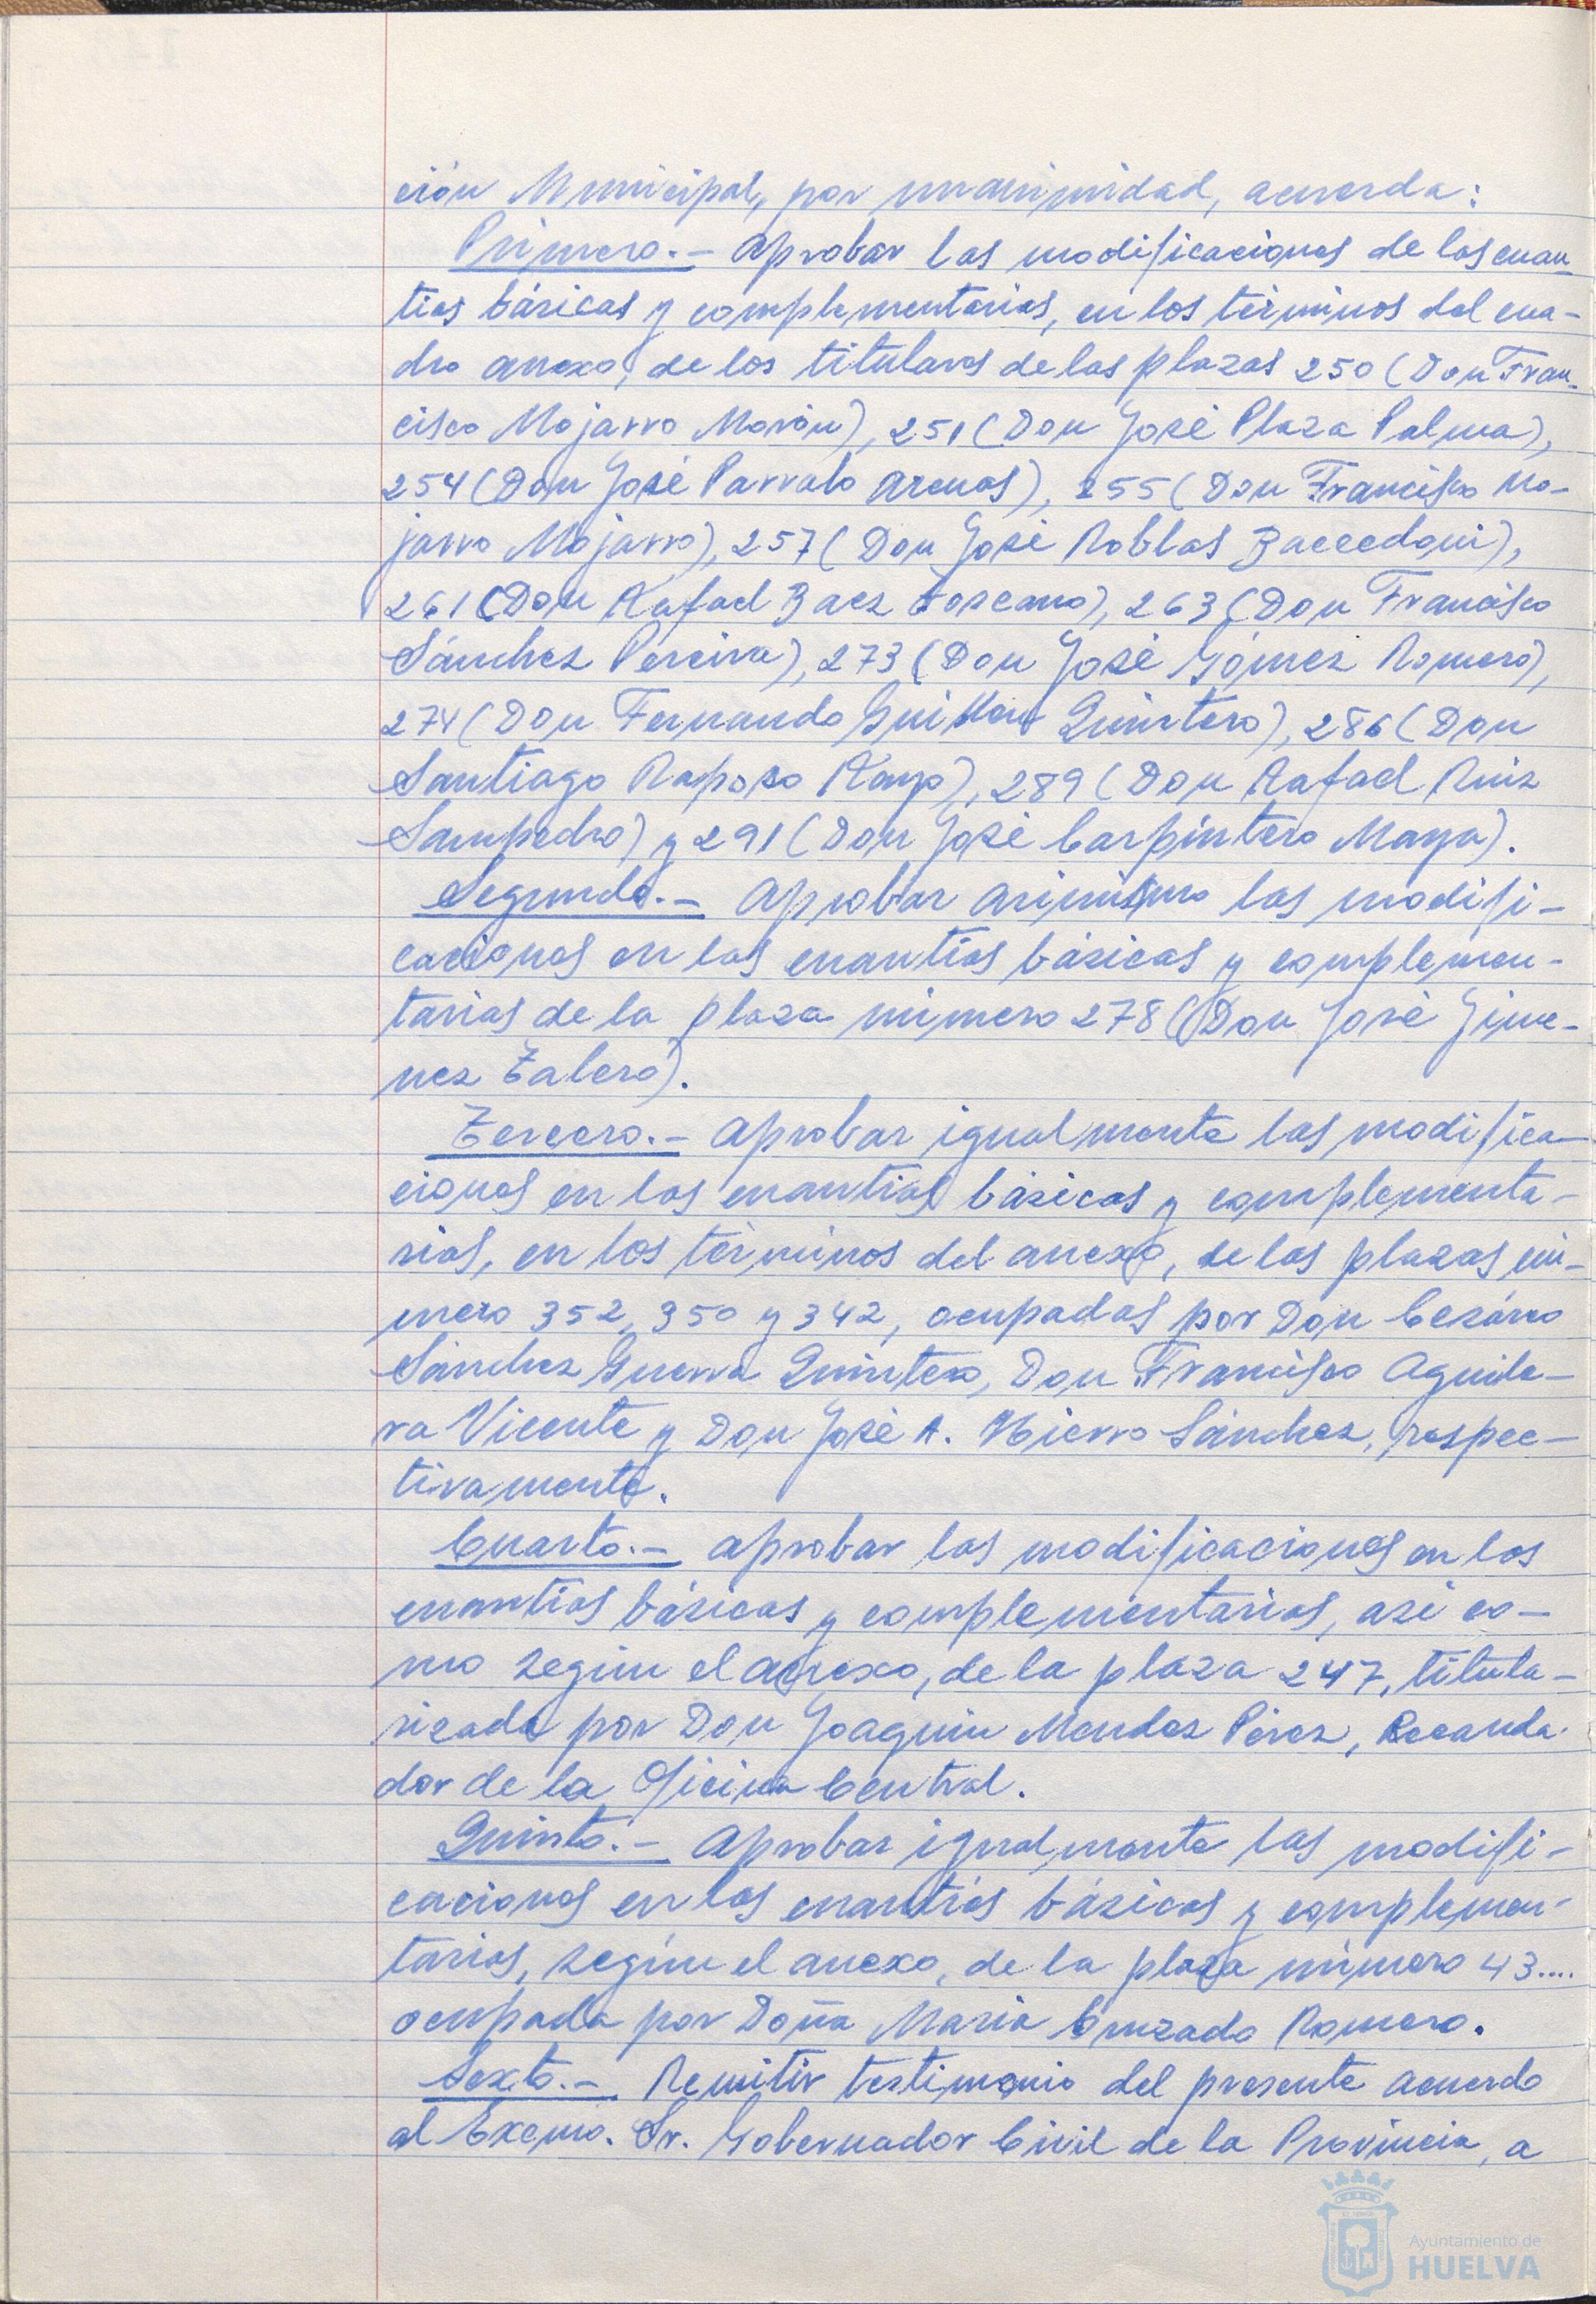 ción Municipal, por unanimidad, acuerda:
Primero.- Aprobar las modificaciones de las cuan-
tías básicas y complementarias, en los términos del cua-
dro anexo, de los titulares de las plazas 250 (Don Fran-
cisco Mojarro Morón), 251 (Don José Plaza Palma),
254 (Don José Parralo Arenas), 255 (Don Francisco Mo-
jarro Mojarro), 257 (Don José Robles Baccedoni),
261 (Don Rafael Baez Toscano), 263 (Don Francisco
Sánchez Pereira), 273 (Don José Gómez Romero),
274 (Don Fernando Guillen Quintero), 286 (Don
Santiago Raposo Rayo), 289 (Don Rafael Ruiz
Sampedro) y 291 (Don José Carpintero Maya).
Segundo.- Aprobar asimismo las modifi-
caciones en las cuantías básicas y complemen-
tarias de la plaza número 278 (Don José Gime-
nez Talero).
Tercero.- Aprobar igualmente las modifica-
ciones en las cuantías básicas y complementa-
rias, en los términos del anexo, de las plazas nú-
mero 352, 350 y 342, ocupadas por Don Cesáreo
Sánchez Guerra Quintero, Don Francisco Aguile-
ra Vicente y Don José A. Hierro Sánchez, respec-
tivamente.
Cuarto.- Aprobar las modificaciones en las
cuantías básicas y complementarias, así co-
mo según el anexo, de la plaza 247, titula-
rizada por Don Joaquin Mendez Pérez, Recauda-
dor de la Oficina Central.
Quinto.- Aprobar igualmente las modifi-
caciones en las cuantías básicas y complemen-
tarias, según el anexo, de la plaza número 43....
ocupada por Doña Maria Cruzado Romero.
Sexto.- Remitir testimonio del presente acuerdo
al Excmo. Sr. Gobernador Civil de la Provincia, a
Ayuntamiento de
HUELVA